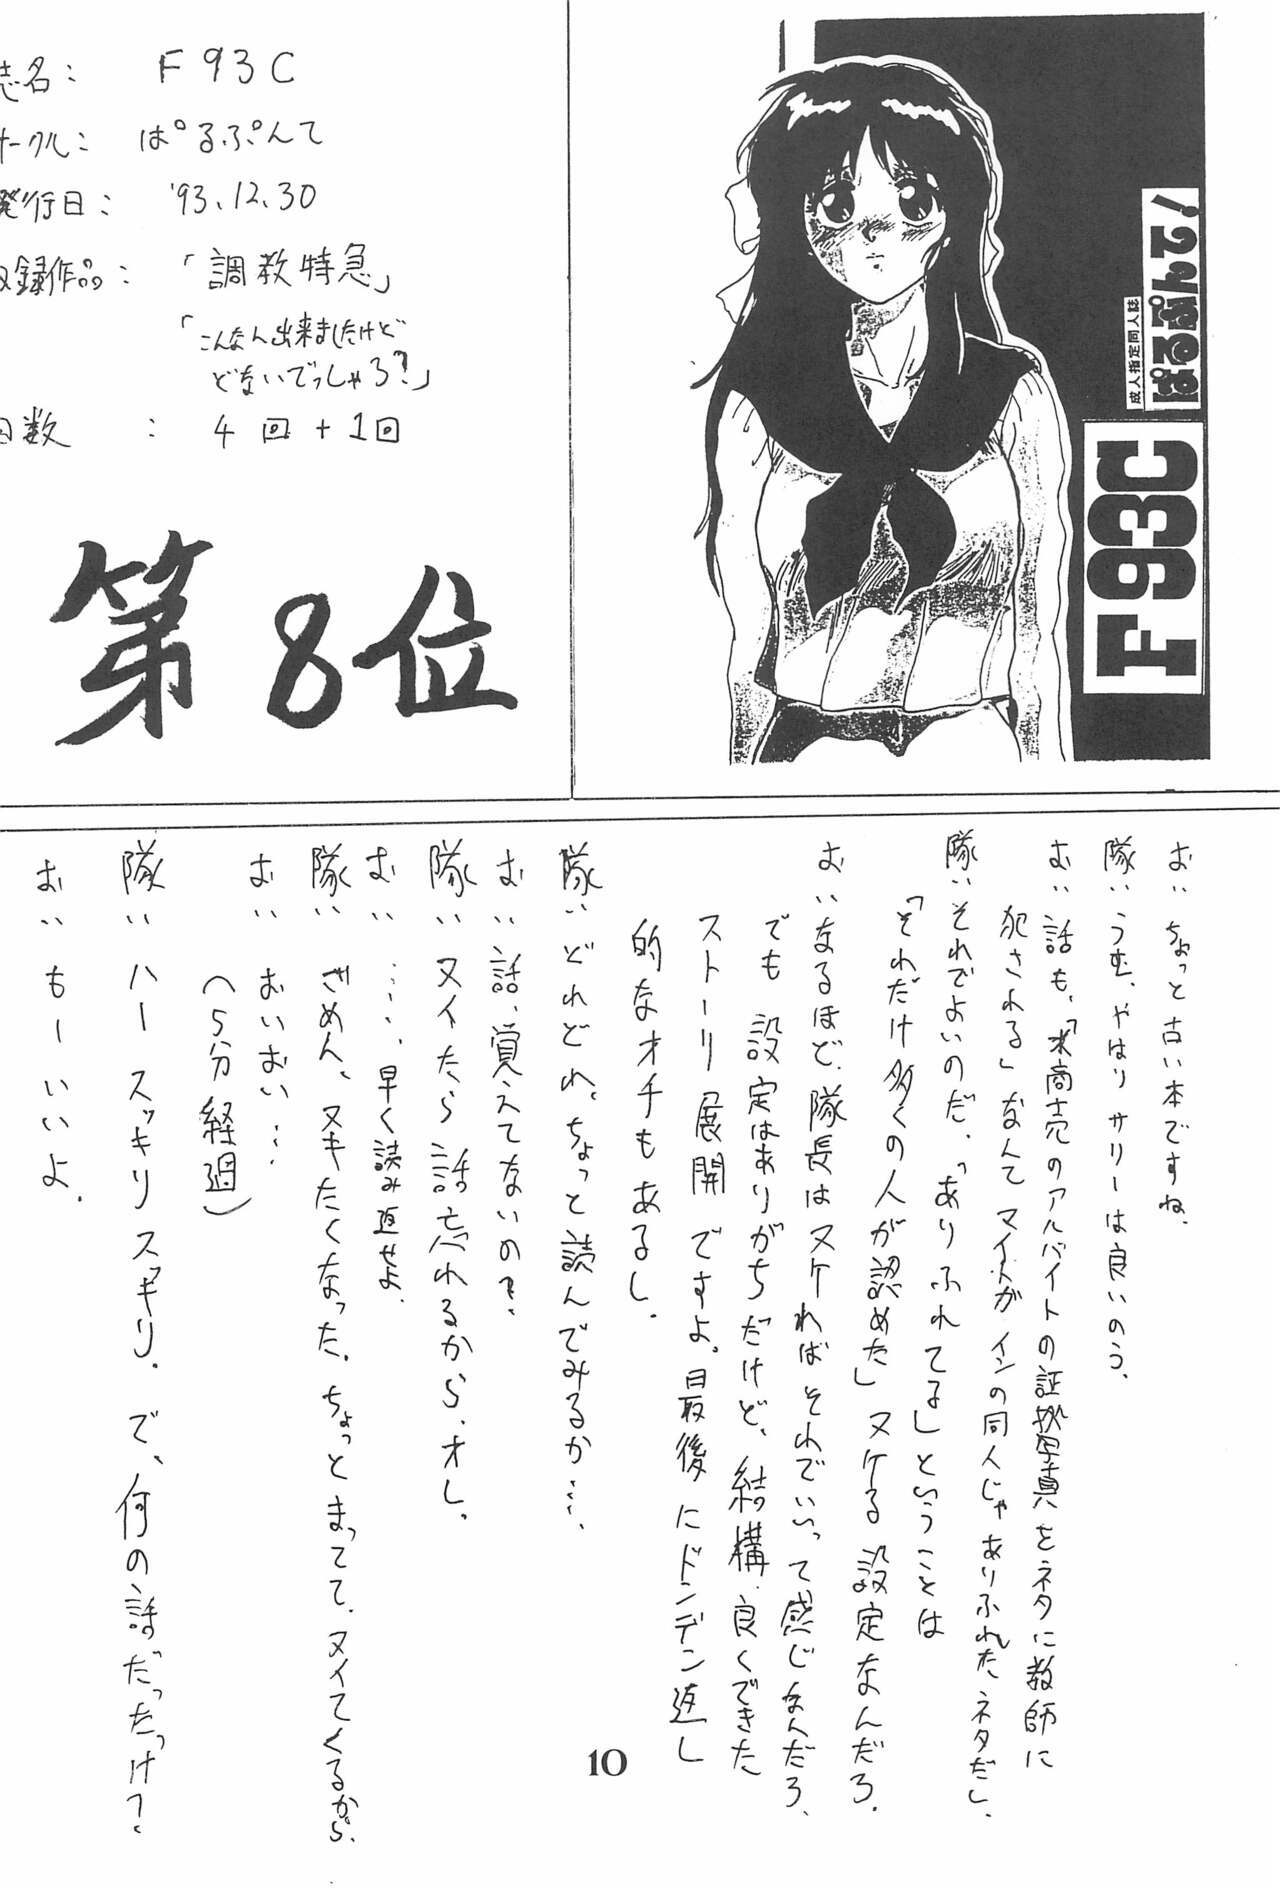 誌名： F93C
サークル： ぱるぷんて
発行日： '93.12.30
収録作品： 「調教特急」
「こんなん出来ましたけど
どないでっしゃろ？」
回数 ： 4回+1回
第8位
成人指定同人誌
ぱるぷんて！
F93C
お：ちょっと古い本ですね。
隊：うむ、やはりサリーは良いのう。
お：話も、「水商売のアルバイトの証拠写真をネタに教師に
犯される」なんてマイナーがインの同人じゃありふれたネタだし。
隊：それでよいのだ。「ありふれてる」ということは
「それだけ多くの人が認めた」ヌケる設定なんだろ。
お：なるほど、隊長はヌケればそれでいいって感じなんだろ、
でも設定はありがちだけど、結構良くできた
ストーリー展開ですよ。最後にドンデン返し
的なオチもあるし。
隊：どれどれ、ちょっと読んでみるか…。
お：話、覚えてないの？
隊：ヌイたら話忘れるから、オレ。
お：…、早く読み返せよ。
隊：ごめん、ヌキたくなった。ちょっとまってて、ヌイてくるから。
お：おいおい…
（5分経過）
隊：ハースッキリスッキリ。で、何の話だったっけ？
お：もーいいよ。
10